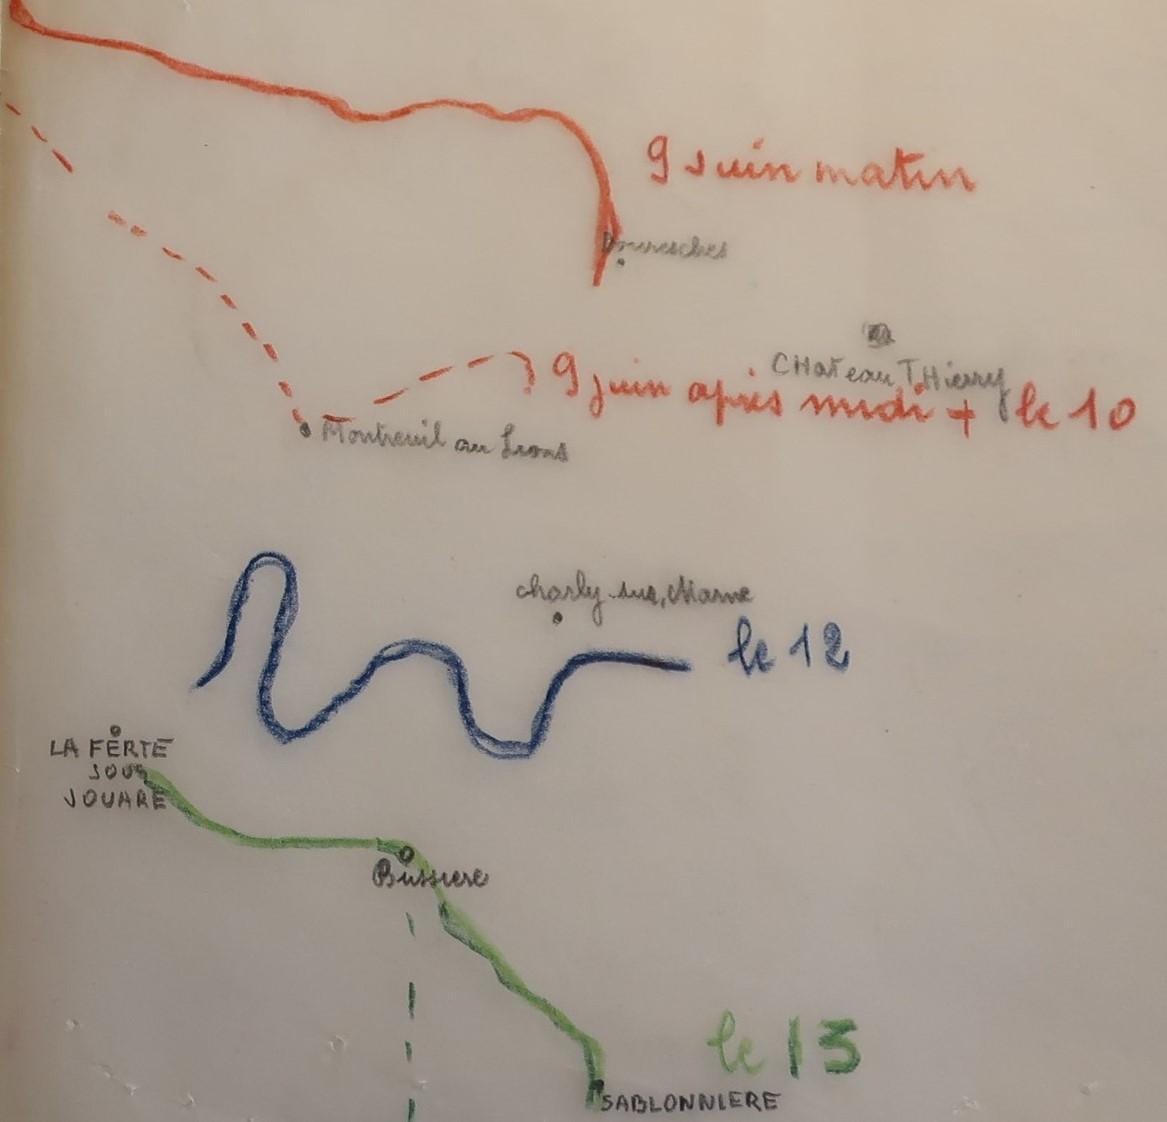 9 Juin matin
Bouresches
CHateau THierry
9 juin après midi + le 10
Montreuil au Lions
charly sur Marne
le 12
LA FERTE
SOUS
JOUARE
Bussiere
le 13
SABLONNIERE